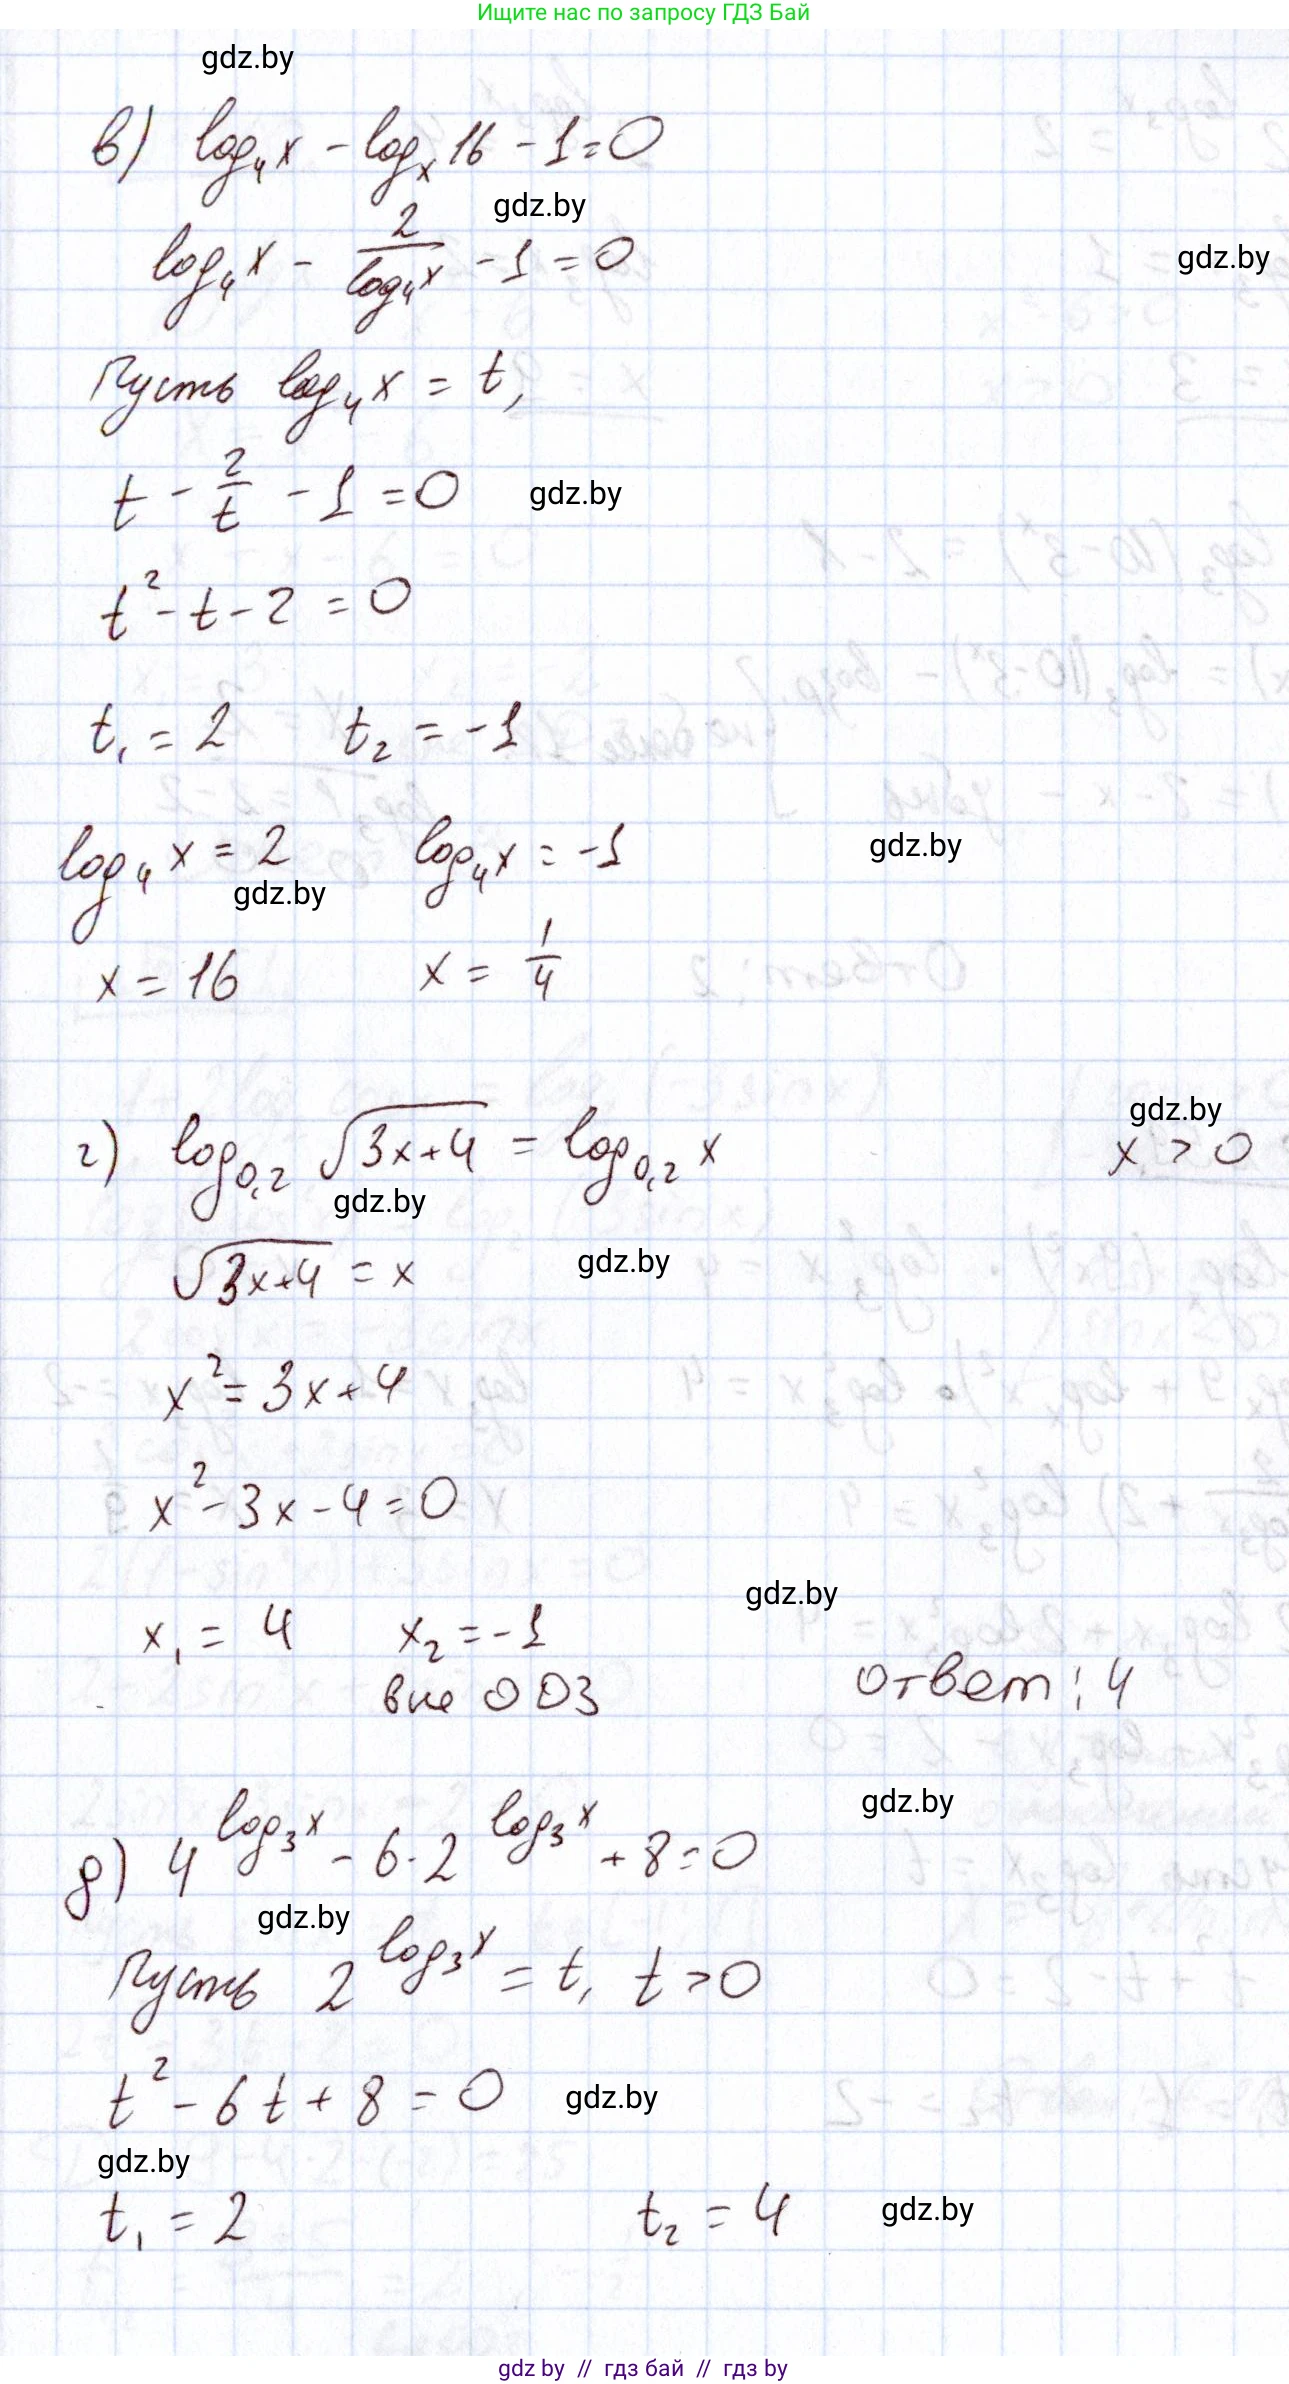 Ищите нас по запросу ГДЗ Бай
gdz.by
в) log₄x - logₓ16 - 1 = 0
gdz.by
log₄x - 2/log₄x - 1 = 0
gdz.by
Пусть log₄x = t,
t - 2/t - 1 = 0 gdz.by
t² - t - 2 = 0
t₁ = 2 t₂ = -1
log₄x = 2 log₄x = -1 gdz.by
gdz.by
x = 16 x = 1/4
gdz.by
г) log₀,₂ √(3x+4) = log₀,₂ x x > 0
gdz.by
√(3x+4) = x gdz.by
x² = 3x + 4
x² - 3x - 4 = 0
gdz.by
x₁ = 4 x₂ = -1
вне ОДЗ ответ: 4
gdz.by
д) 4^(log₃x) - 6·2^(log₃x) + 8 = 0
gdz.by
Пусть 2^(log₃x) = t, t > 0
t² - 6t + 8 = 0 gdz.by
gdz.by
t₁ = 2 t₂ = 4 gdz.by
gdz by // гдз бай // гдз by